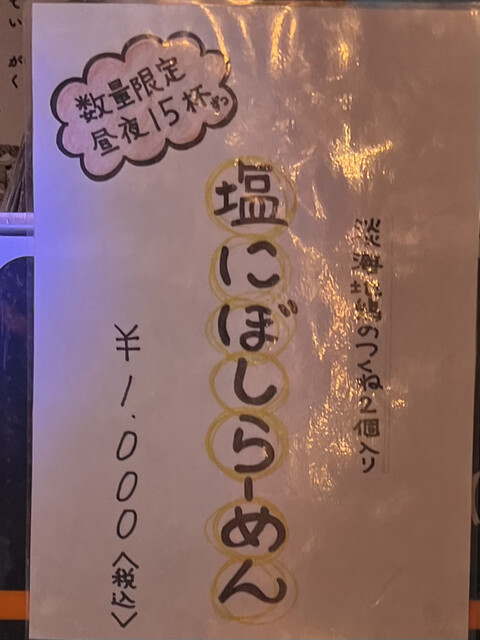 数量限定
昼夜15杯ずつ
淡海地鶏のつくね2個入り
塩にぼしらーめん
¥1.000〈税込〉